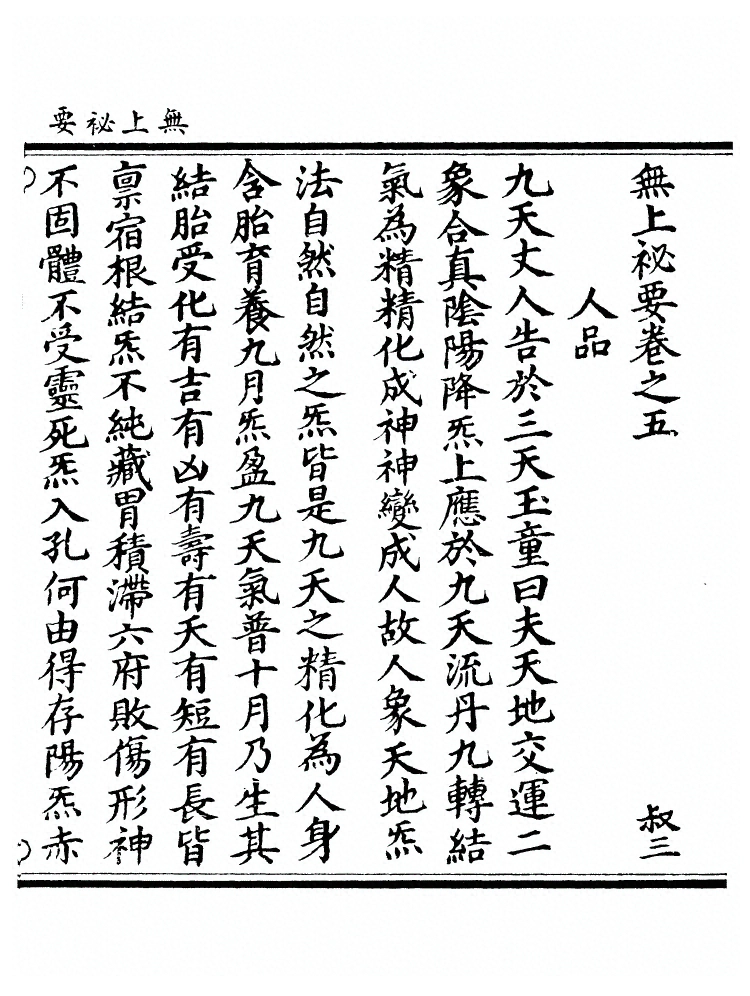 無上祕要
無上祕要卷之五 叔三
人品
九天丈人告於三天玉童曰夫天地交運二
象合真陰陽降炁上應於九天流丹九轉結
氣為精精化成神神變成人故人象天地炁
法自然自然之炁皆是九天之精化為人身
含胎育養九月炁盈九天氣普十月乃生其
結胎受化有吉有凶有壽有夭有短有長皆
禀宿根結炁不純藏胃積滯六府敗傷形神
不固體不受靈死炁入孔何由得存陽炁赤